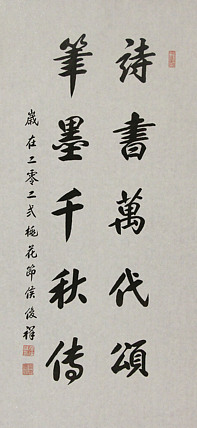 詩書萬代頌
筆墨千秋傳
歲在二零二弎桃花節侯俊祥